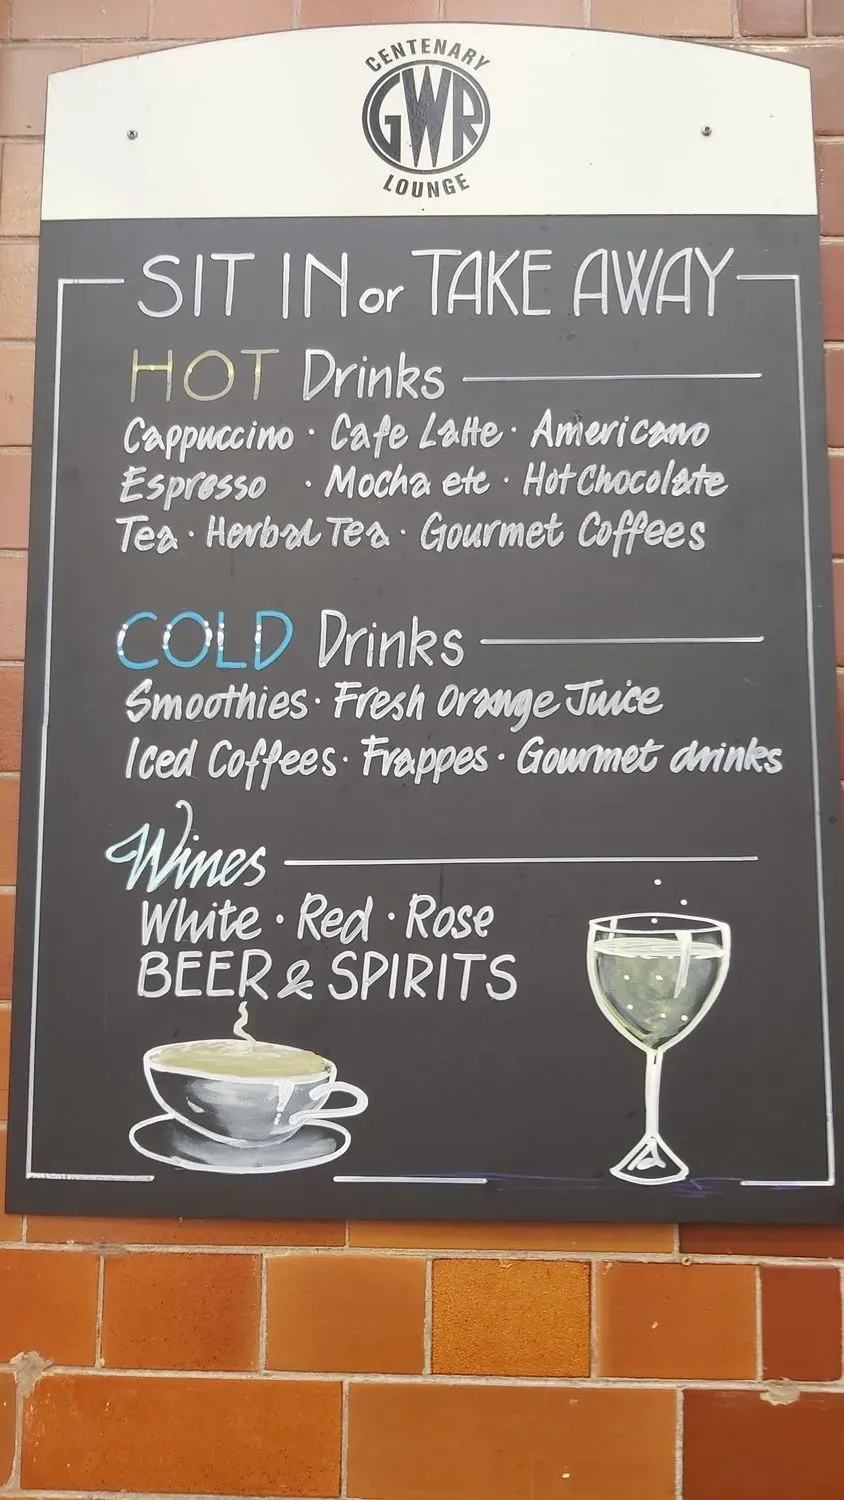 CENTENARY
GWR
LOUNGE
SIT IN or TAKE AWAY
HOT Drinks
Cappuccino · Cafe Latte · Americano
Espresso · Mocha etc · Hot Chocolate
Tea · Herbal Tea · Gourmet Coffees
COLD Drinks
Smoothies · Fresh Orange Juice
Iced Coffees · Frappes · Gourmet drinks
Wines
White · Red · Rose
BEER & SPIRITS